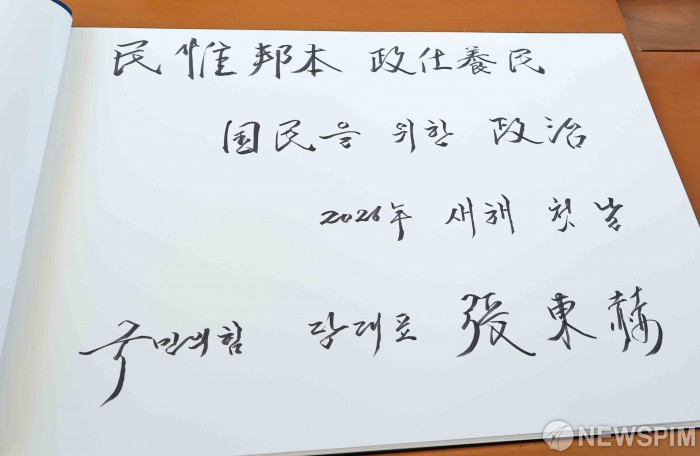 民惟邦本 政在養民
国民을 위한 政治
2026年 새해 첫 날
국민의힘 당대표 張東赫
NEWSPIM